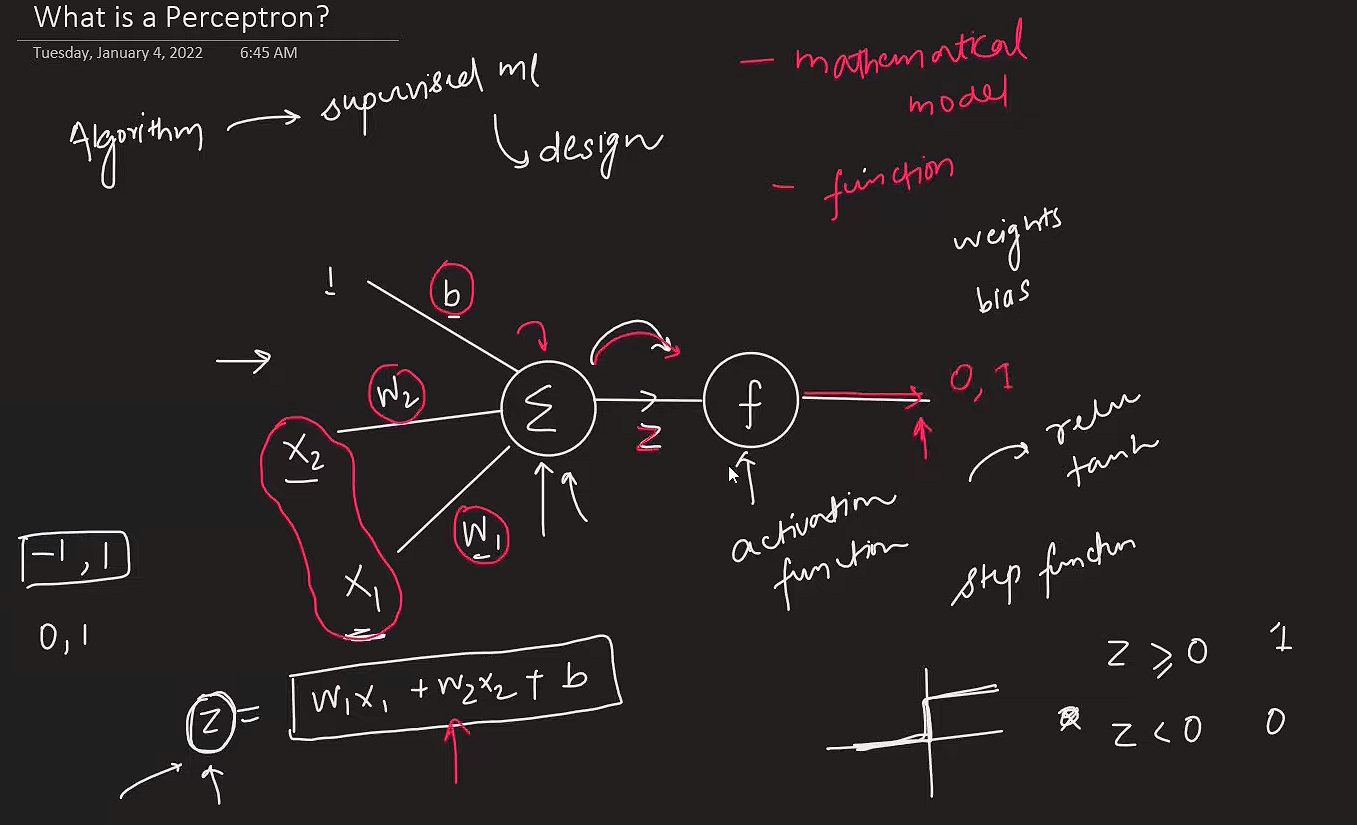 What is a Perceptron?
Tuesday, January 4, 2022 6:45 AM
Algorithm → supervised ml
design
— mathematical
model
- function
weights
bias
1
b
W₂
Σ
Z
f
0, 1
X₂
W₁
X₁
relu
tanh
activation
function
step function
-1, 1
0, 1
Z = W₁X₁ + W₂X₂ + b
Z ⩾ 0 1
Z < 0 0